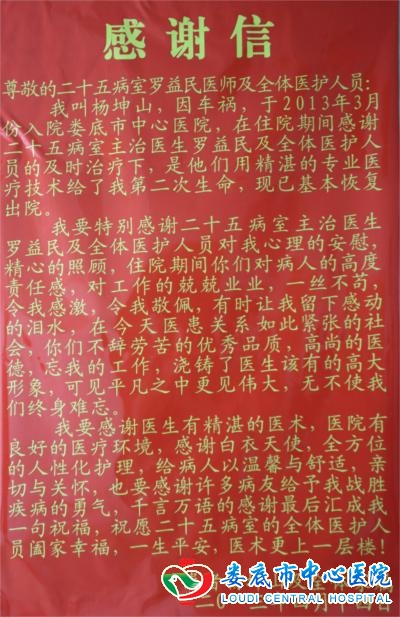 感谢信
尊敬的二十五病室罗益民医师及全体医护人员：
我叫杨坤山，因车祸，于2013年3月
份入院娄底市中心医院，在住院期间感谢
二十五病室主治医生罗益民及全体医护人
员的及时治疗下，是他们用精湛的专业医
疗技术给了我第二次生命，现已基本恢复
出院。
我要特别感谢二十五病室主治医生
罗益民及全体医护人员对我心理的安慰，
精心的照顾，住院期间你们对病人的高度
责任感，对工作的兢兢业业，一丝不苟，
令我感激，令我敬佩，有时让我留下感动
的泪水，在今天医患关系如此紧张的社
会，你们不辞劳苦的优秀品质，高尚的医
德，忘我的工作，浇铸了医生该有的高大
形象，可见平凡之中更见伟大，无不使我
们终身难忘。
我要感谢医生有精湛的医术，医院有
良好的医疗环境，感谢白衣天使，全方位
的人性化护理，给病人以温馨与舒适，亲
切与关怀，也要感谢许多病友给予我战胜
疾病的勇气，千言万语的感谢最后汇成我
一句祝福，祝愿二十五病室的全体医护人
员阖家幸福，一生平安，医术更上一层楼！
娄底市中心医院
LOUDI CENTRAL HOSPITAL